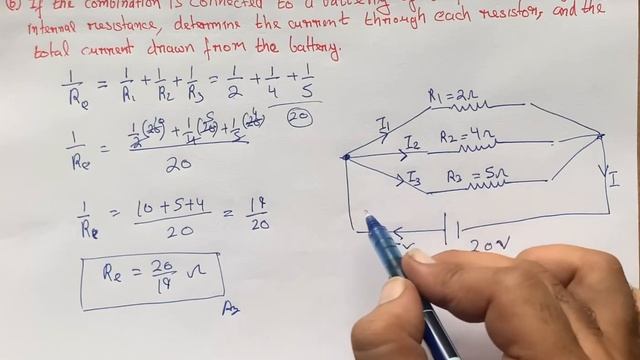 (b) If the combination is connected to a battery of
internal resistance, determine the current through each resistor, and the
total current drawn from the battery.
1/Re = 1/R1 + 1/R2 + 1/R3 = 1/2 + 1/4 + 1/5
20
1/Re = 1/2(20) 10 + 1/4(20) 5 + 1/5(20) 4 / 20
1/Re = 10+5+4 / 20 = 19/20
Re = 20/19 Ω
Ans
R1=2Ω
I1
I2
R2=4Ω
I3
R3=5Ω
I
20V